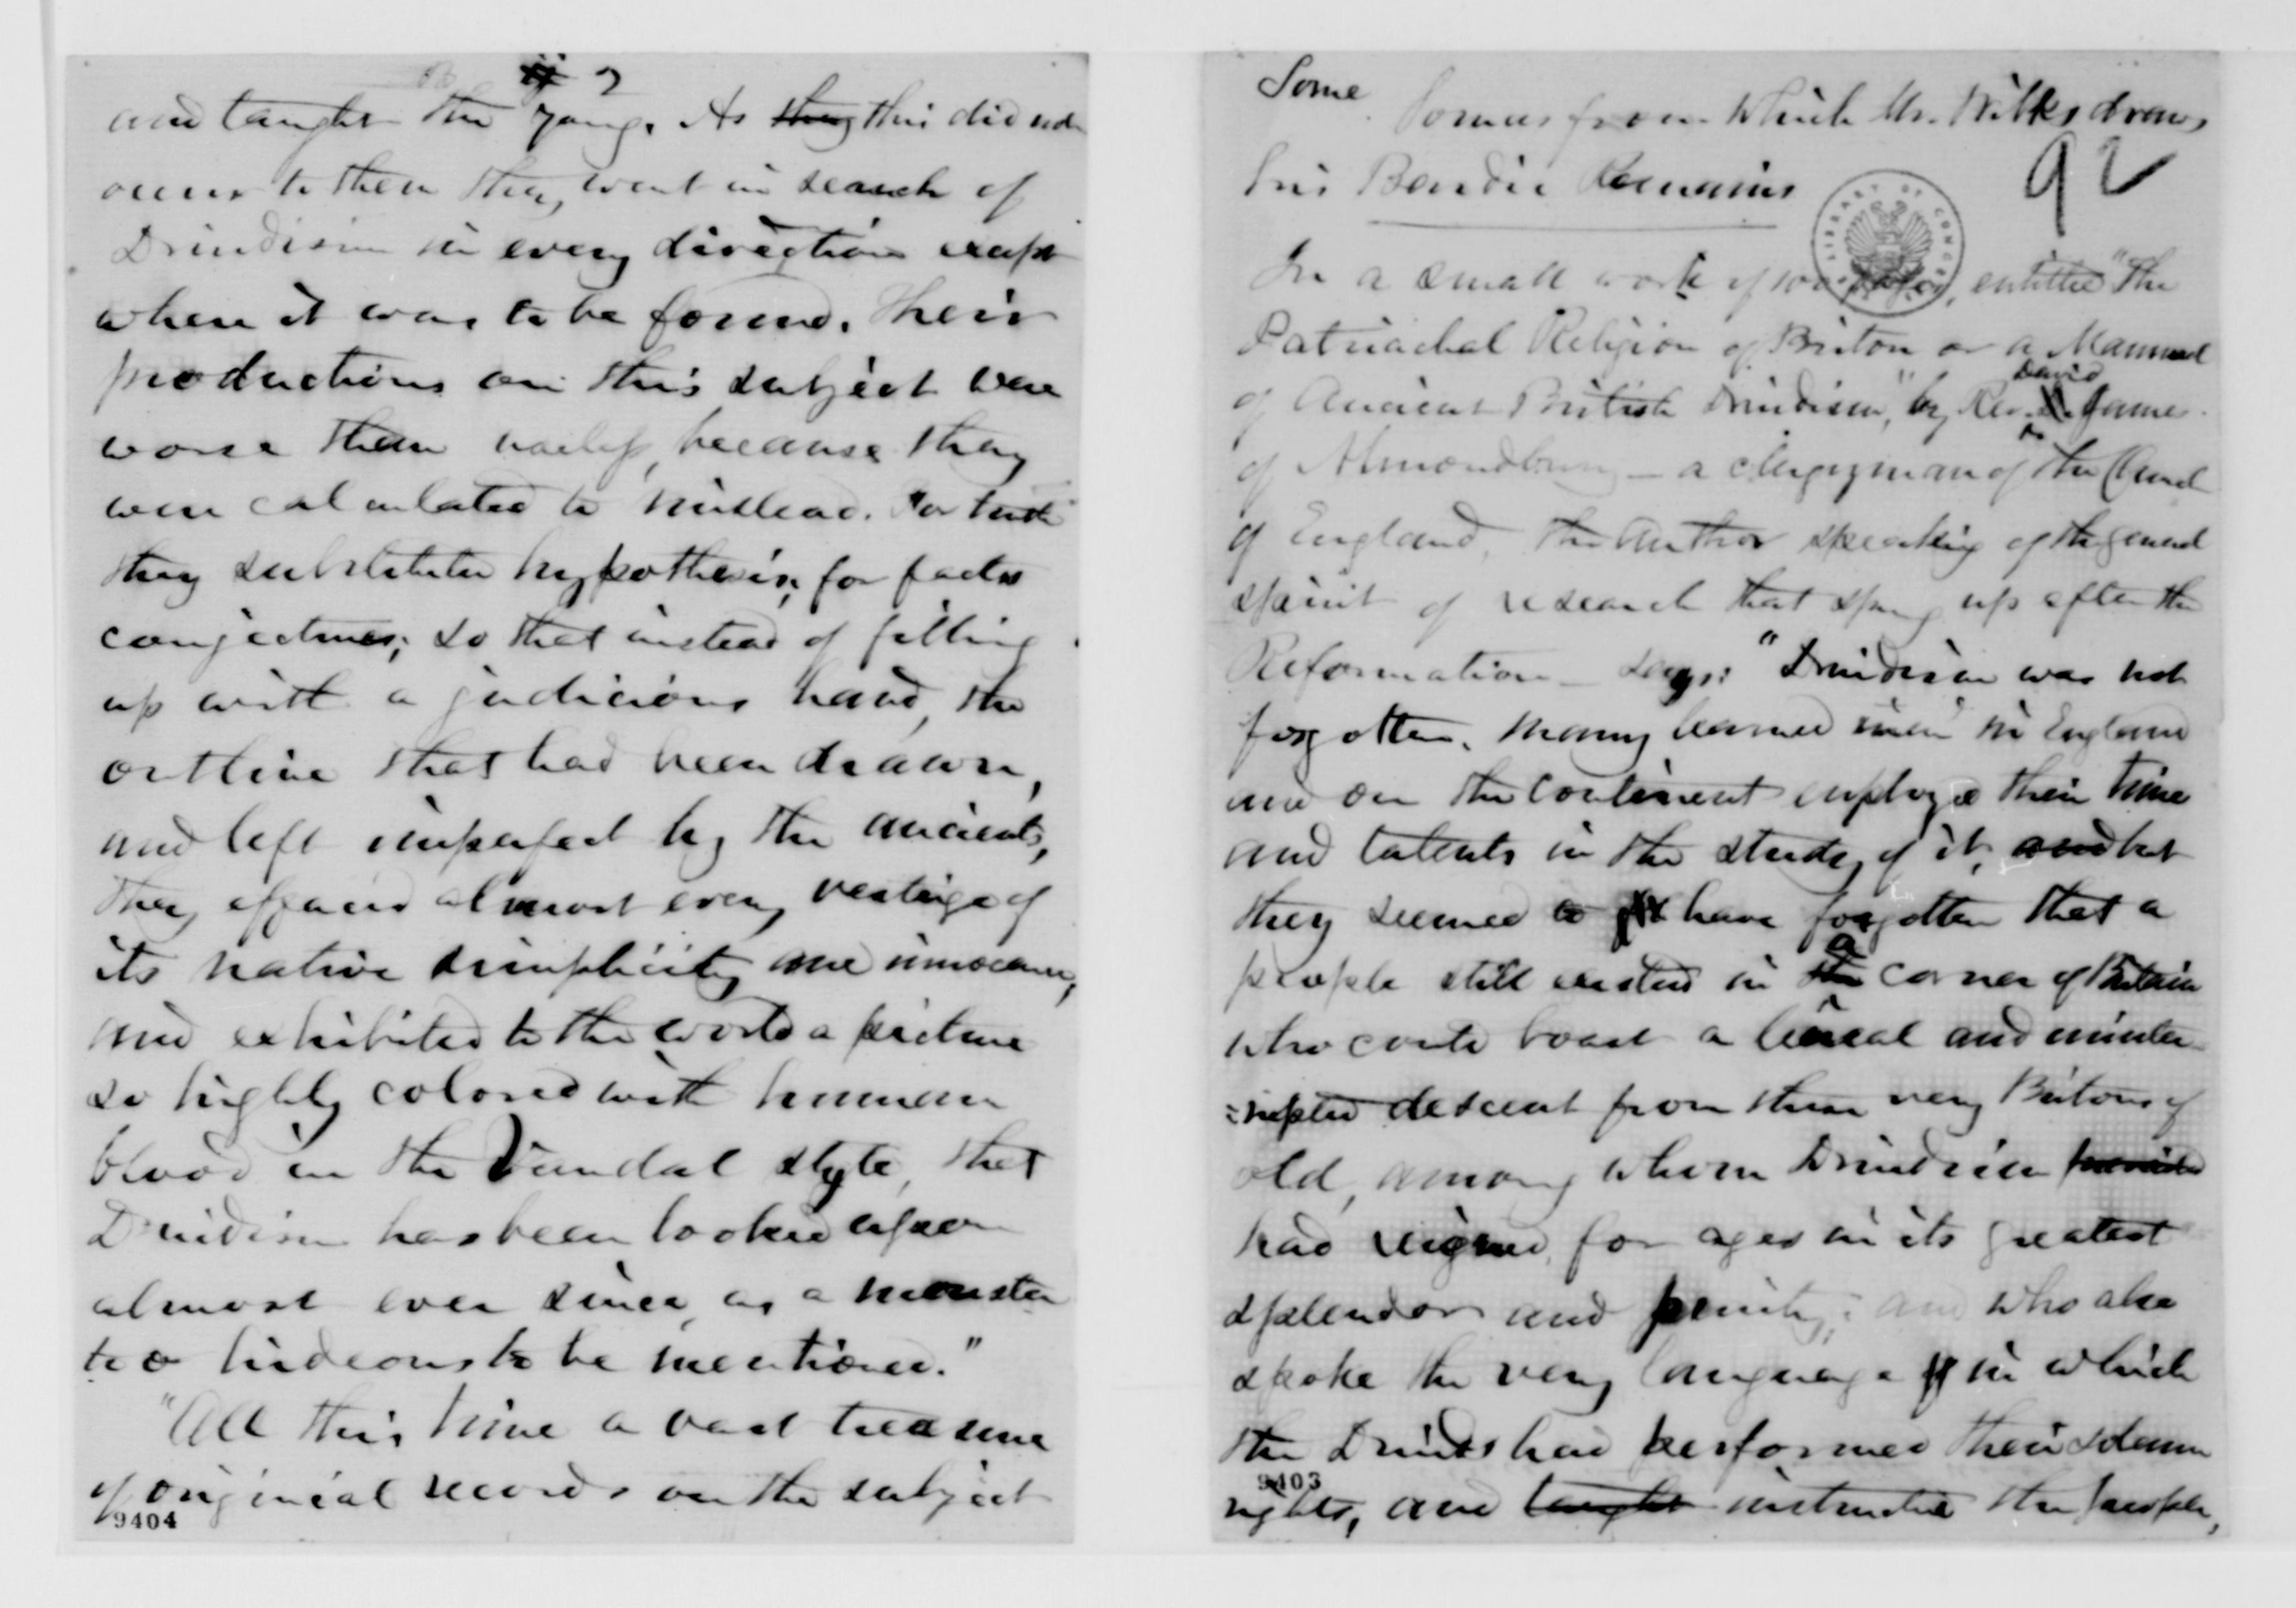 2
and taught the young. As they this did not
occur to them they went in search of
Druidism in every direction except
where it was to be found. Their
productions on this subject were
worse than useless, because they
were calculated to mislead. For truth
they substituted hypothesis; for facts
conjectures; so that instead of filling
up with a judicious hand, the
outline that had been drawn,
and left imperfect by the ancients,
they effaced almost every vestige of
its native simplicity and innocence,
and exhibited to the world a picture
so highly colored with human
blood in the Vandal style, that
Druidism has been looked upon
almost ever since, as a monster
too hideous to be mentioned."
"All this time a vast treasure
of original records on the subject
9404
Some Sources from which Mr. Wilks draws
his Bardic Remains
92
LIBRARY OF CONGRESS
In a small work of 100 pages, entitled "The
Patriachal Religion of Briton or a Manual
of Ancient British Druidism," by Rev. David James
of Almondbury — a clergyman of the Church
of England, The Author speaking of the general
spirit of research that sprung up after the
Reformation — says: "Druidism was not
forgotten. Many learned men in England
and on the Continent employed their time
and talents in the study of it, and but
they seemed to have forgotten that a
people still existed in the a corner of Britain
who could boast a lineal and uninter-
=rupted descent from those very Britons of
old, among whom Druidism
had reigned for ages in its greatest
splendor and purity; and who also
spoke the very language in which
the Druids had performed their solemn
9403
rights, and taught instructed the people,